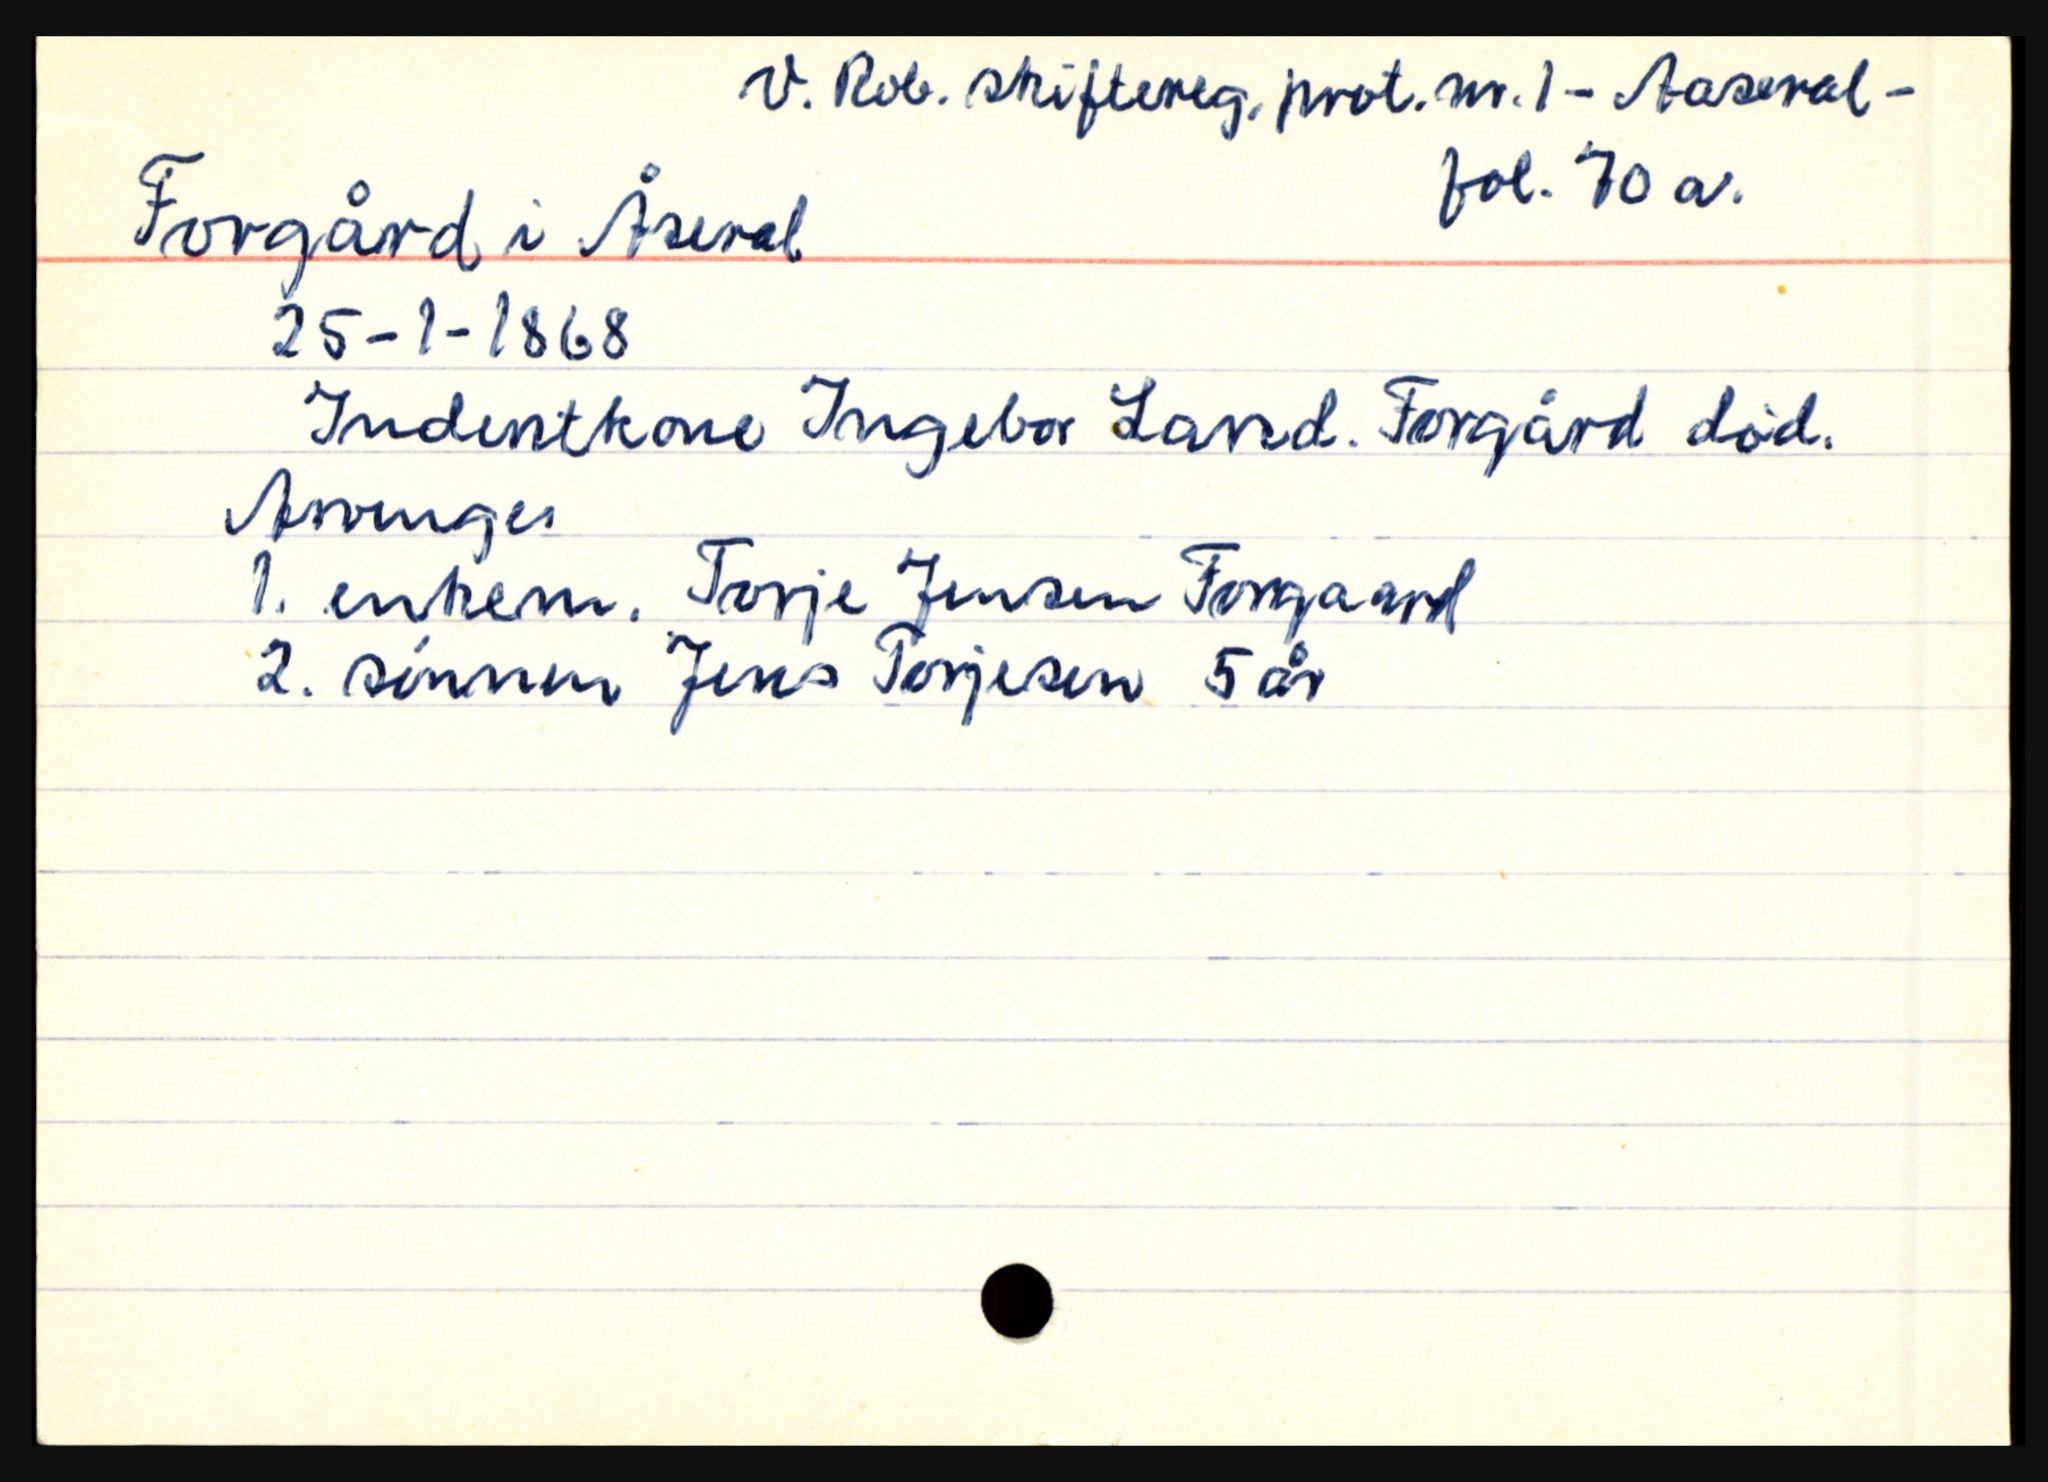 V. Rob. skiftereg. prot. nr. 1 - Aaseral -
fol. 70 a.
Forgård i Åseral
25-1-1868
Inderstkone Ingebor Larsd. Forgård død.
Arvinger
1. enkem. Torje Jensen Forgaard
2. sønnen Jens Torjesen 5 år